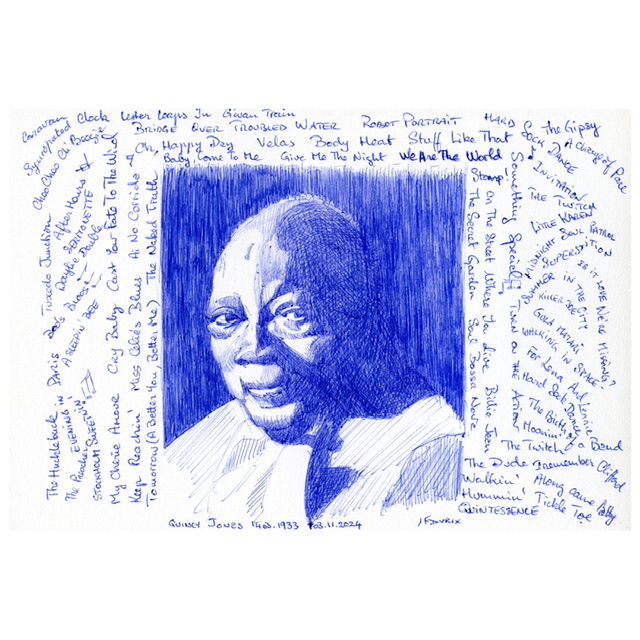 Caravan
Syncopated Clock Lester Leaps In Givan Train
Choo Choo Ch' Boogie
BRIDGE OVER TROUBLED WATER ROBOT PORTRAIT
HARD SOCK DANCE
The Gipsy
A change of Pace
Oh, Happy Day Velas Body Heat Stuff Like That
Baby Come To Me Give Me The Night We Are The World
Tuxedo Junction
After Hours
Doodlin'
BOO'S BLOOS
A SLEEPIN' BEE
The Huckle buck
PARIS
The EVENING IN
The Preacher
STOCKHOLM SWEETNIN'
My Cherie Amour Cry Baby Cast Your Fate To The Wind
Keep Reachin Miss Celie's Blues Ai No Corrida
Tomorrow (A Better You, Better Me) The Naked Truth
Stomp! The Secret Garden Soul Bossa Nova
On The Street Where You Live Billie Jean
Something Special TURN ON THE ACTION
INVITATION
THE TWITCH
LITTLE KAREN
MIDNIGHT SOUL PATROL
SUPERSTITION
IS IT LOVE WE'RE MISSING?
SUMMER IN THE CITY
KILLER JOE
GULA MATARI
WALKING IN SPACE
For Lena And Lennie
Hard Sock Dance
The Birth of a Band
Moanin'
The Twitch
The Dude I remember Clifford
Walkin' Along Came Betty
Hummin' Tickle Toe
QUINTESSENCE
QUINCY JONES 14.03.1933 03.11.2024